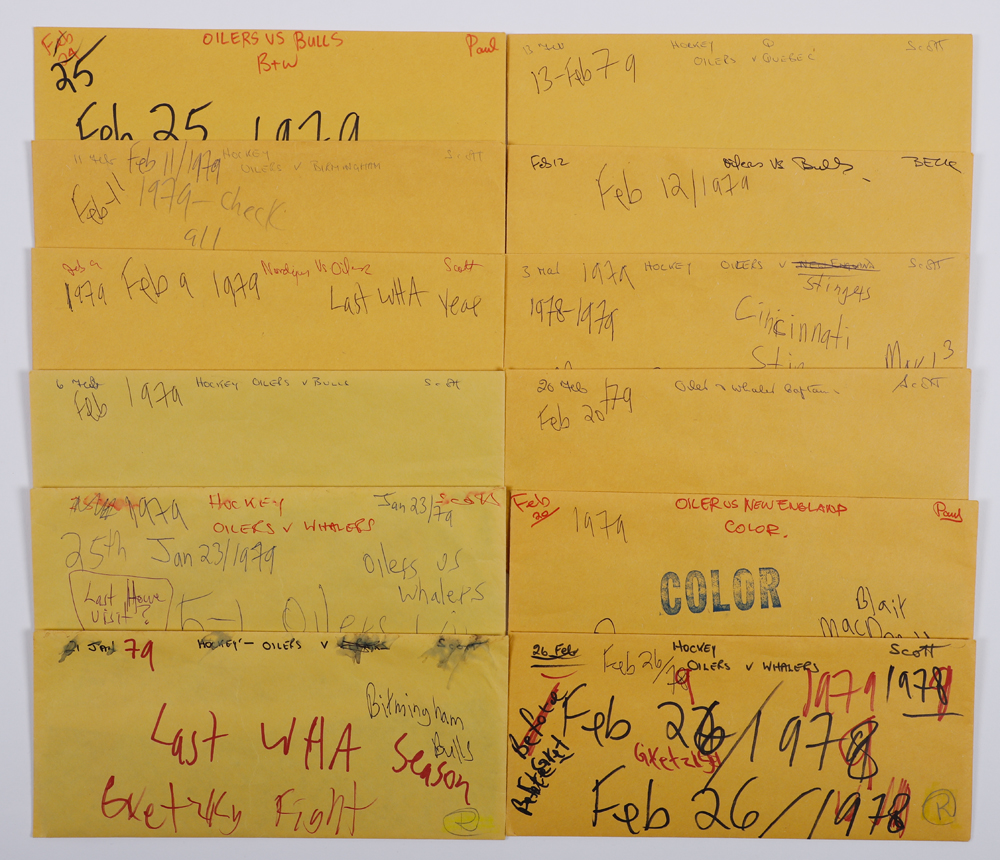 Feb 24
25
OILERS VS BULLS
B+W
Paul
Feb 25 1979
11 Feb Feb 11/1979 HOCKEY Scott
OILERS v BIRMINGHAM
Feb-11 1979-check
all
Feb 9 Nordiques Vs Oilers Scott
1979 Feb 9 1979 Last WHA year
6 Feb HOCKEY OILERS v BULLS Scott
Feb 1979
1979 HOCKEY Jan 23/79 Scott
OILERS v WHALERS
25th Jan 23/1979 Oilers vs
Whalers
Last Howe
visit?
5-1 Oilers
21 JAN 79 HOCKEY - OILERS v Scott
Birmingham
Bulls
Last WHA Season
Gretzky Fight
R
13 Feb HOCKEY Scott
OILERS v QUEBEC
13-Feb 79
Feb 12 Oilers vs Bulls BECK
Feb 12/1979
3 Mar 1979 HOCKEY OILERS v NEW ENGLAND Scott
Stingers
1978-1979 Cincinnati
March 3
20 Feb Oiler v Whaler Scott
Feb 20/79
Feb 20 OILER VS NEW ENGLAND Paul
COLOR.
1979
COLOR
Blair
26 Feb HOCKEY Scott
Feb 26/79 OILERS v WHALERS 1979 1978
Before
Gretzky
Feb 26/1978
Feb 26/1978
R